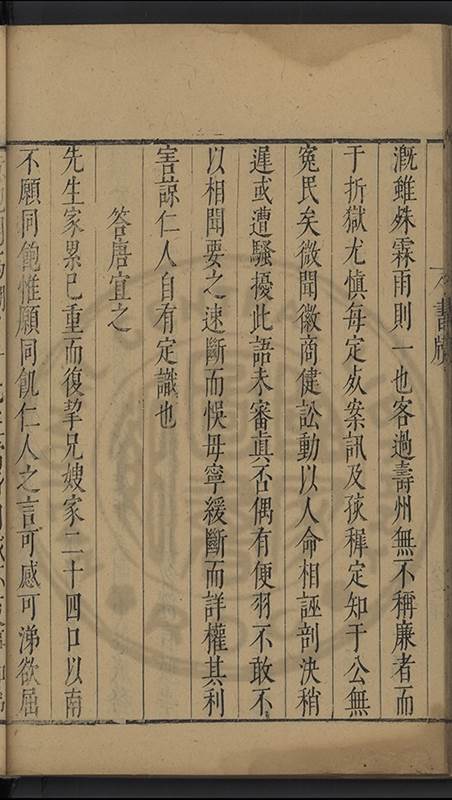 溉雖殊霖雨則一也客過壽州無不稱廉者而
于折獄尤慎每定𡖖案訊及孩穉定知于公無
寃民矣微聞徽商健訟動以人命相誣剖決稍
遲或遭騷擾此語未審眞否偶有便羽不敢不
以相聞要之速斷而悞毋寧緩斷而詳權其利
害諒仁人自有定識也
答唐宜之
先生家累已重而復挈兄嫂家二十四口以南
不願同飽惟願同飢仁人之言可感可涕欲屈